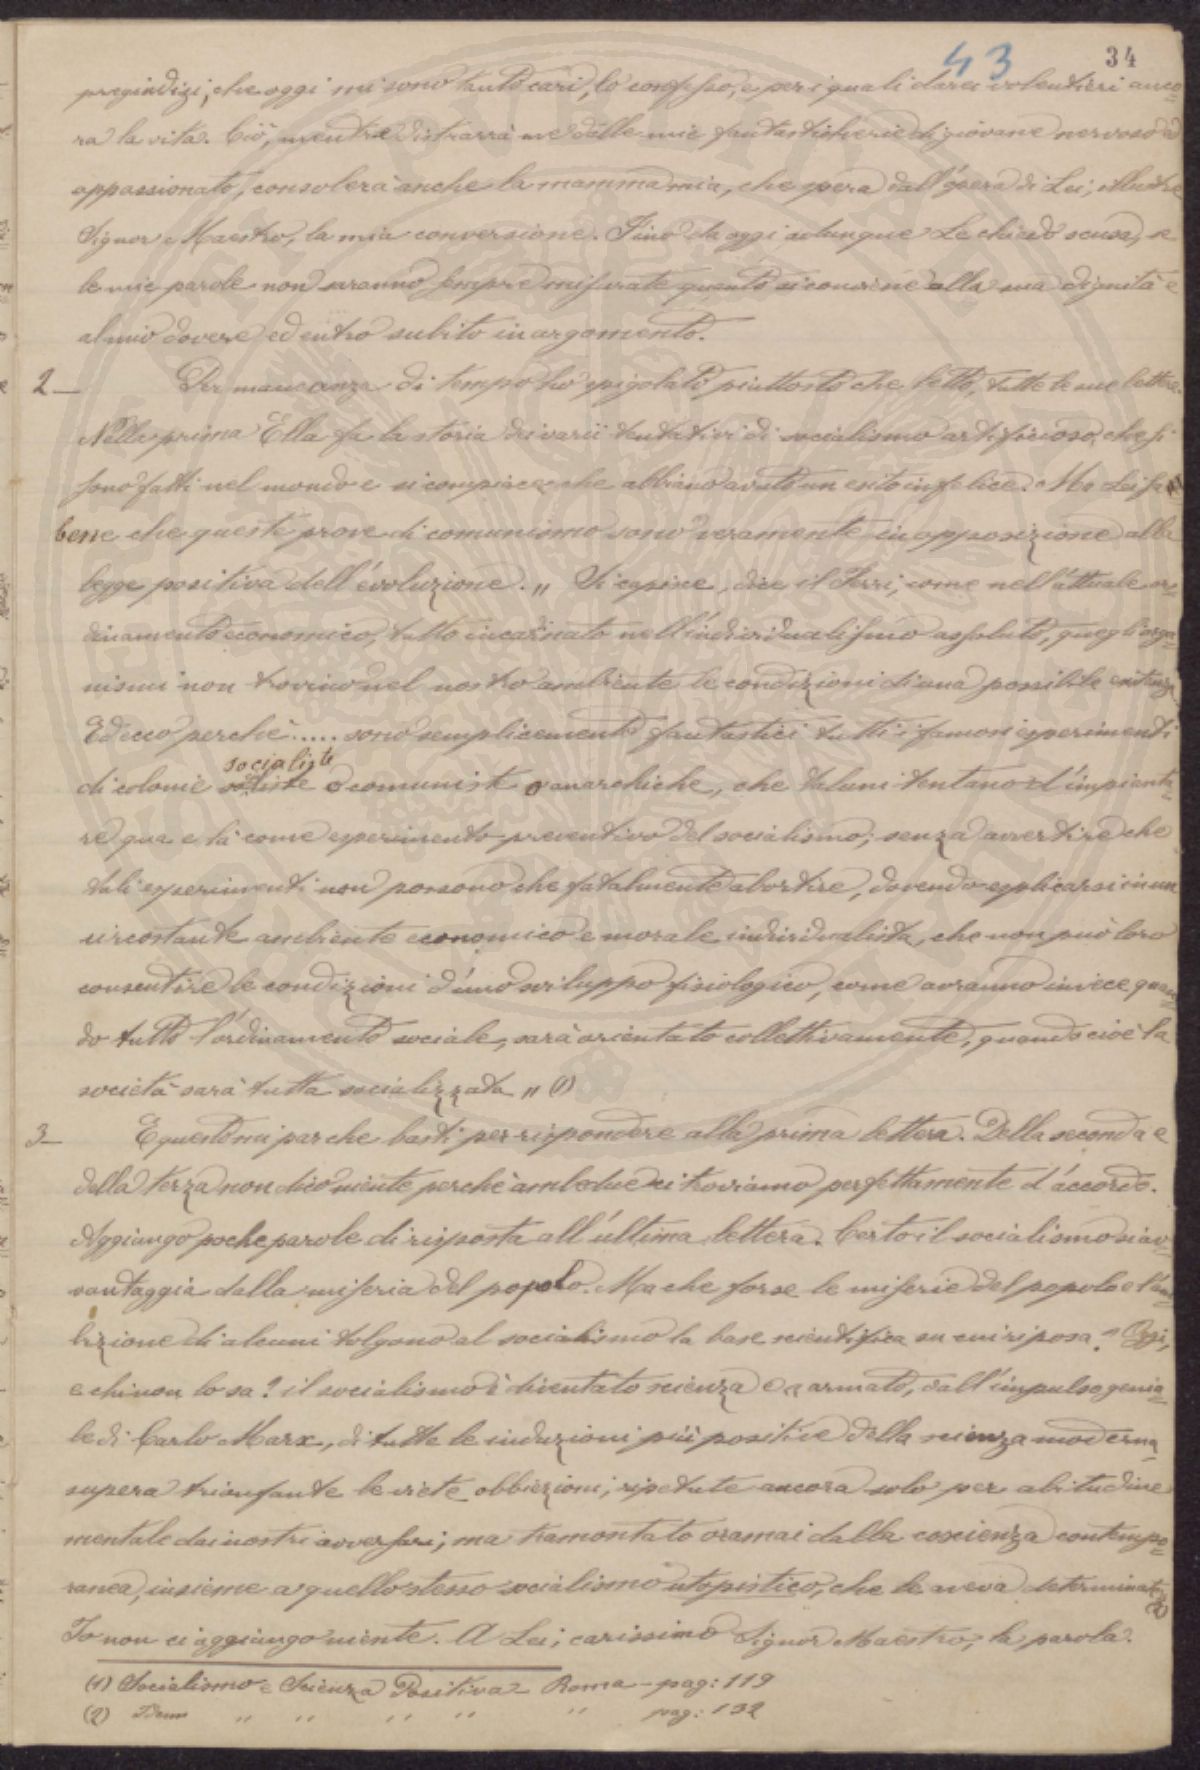 43 34
pregiudizi, che oggi mi sono tanto cari, lo confesso, e per i quali darei volentieri anco-
ra la vita. Ciò, mentre distrarrà me dalle mie fantasticherie di giovane nervoso ed
appassionato, consolerà anche la mamma mia, che spera dall'opera di Lei, illustre
Signor Maestro, la mia conversione. Fino da oggi adunque Le chiedo scusa, se
le mie parole non saranno sempre misurate quanto si conviene alla sua dignità e
al mio dovere ed entro subito in argomento.
2 — Per mancanza di tempo ho spigolato piuttosto che letto, tutte le sue lettere.
Nella prima Ella fa la storia dei varii tentativi di socialismo artificioso, che si
sono fatti nel mondo e si compiace che abbiano avuto un esito infelice. Ma Lei sa
bene che queste prove di comunismo sono veramente in opposizione alla
legge positiva dell'evoluzione. „ Si capisce, dice il Ferri, come nell'attuale or-
dinamento economico, tutto incardinato nell'individualismo assoluto, quegli orga-
nismi non trovino nel nostro ambiente le condizioni di una possibile esistenza
Ed ecco perchè..... sono semplicemente fantastici tutti i famosi esperimenti
socialiste
di colonie o comuniste o anarchiche, che taluni tentano d'impianta-
re qua e là come esperimento preventivo del socialismo; senza avvertire che
tali esperimenti non possono che fatalmente abortire, dovendo esplicarsi in un
circostante ambiente economico e morale individualista, che non può loro
consentire le condizioni d'uno sviluppo fisiologico, come avranno invece quan-
do tutto l'ordinamento sociale, sarà orientato collettivamente, quando cioè la
società sarà tutta socializzata „ (1)
3 — E questo mi par che basti per rispondere alla prima lettera. Della seconda e
della terza non dico niente perchè ambedue ci troviamo perfettamente d'accordo.
Aggiungo poche parole di risposta all'ultima lettera. Certo il socialismo si av-
vantaggia dalla miseria del popolo. Ma che forse le miserie del popolo e l'am-
bizione di alcuni tolgono al socialismo la base scientifica su cui riposa? „ Oggi,
e chi non lo sa? il socialismo è diventato scienza e armato, dall'impulso genia-
le di Carlo Marx, di tutte le induzioni più positive della scienza moderna
supera trionfante le viete obbiezioni, ripetute ancora solo per abitudine
mentale dai nostri avversari; ma tramontato oramai dalla coscienza contempo-
ranea, insieme a quello stesso socialismo utopistico, che le aveva determinate „ (2)
Io non ci aggiungo niente. A Lei, carissimo Signor Maestro, la parola.
(1) Socialismo e Scienza Positiva Roma - pag: 119
(2) Idem „ „ „ „ „ pag: 132